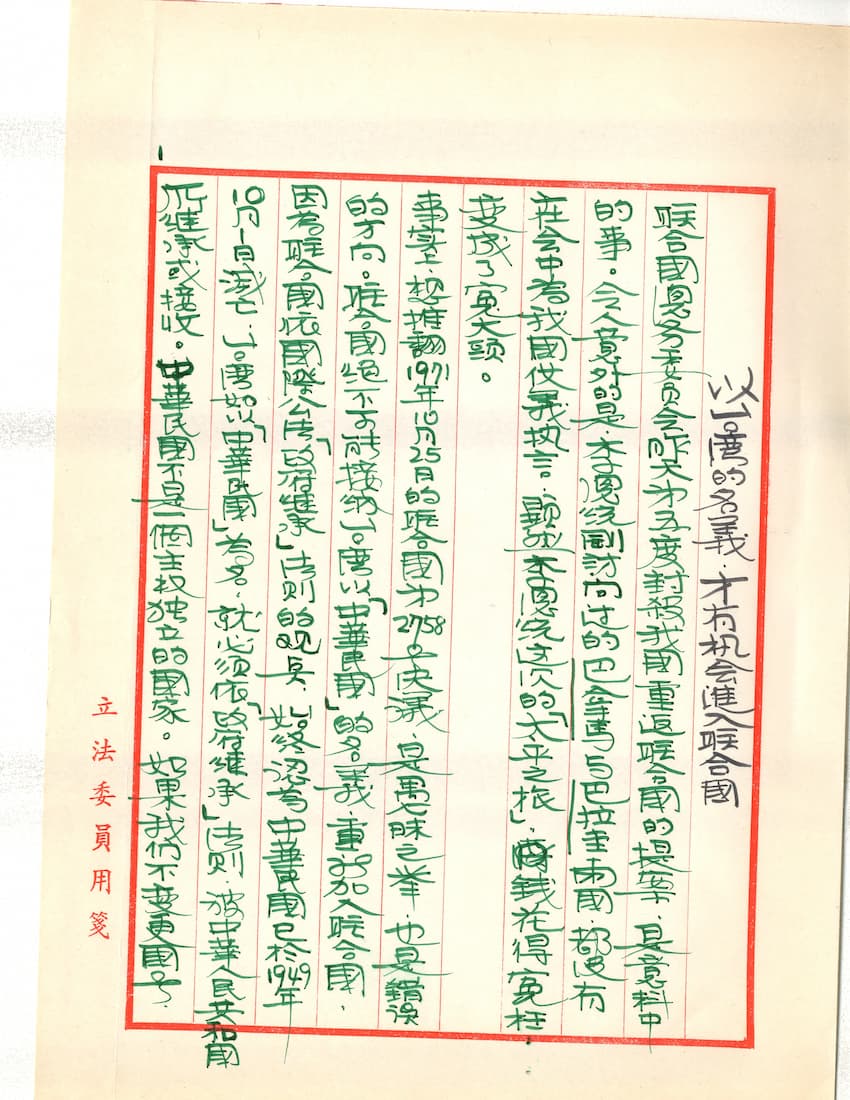 以台湾的名義.才有机会進入联合國
联合國总务委员会昨天第五度封殺我國重返联合國的提案.是意料中
的事。令人意外的是.李总统剛訪向过的巴拿馬与巴拉圭兩國.都没有
在会中為我國仗義执言.顯然李总统这次的「太平之旅」.錢花得寃枉.
变成了寃大頭。
事实上.想推翻1971年10月25日的联合國第2758号决議.是愚昧之举.也是錯误
的方向。联合國絕不可能接納台湾以「中華民國」的名義.重新加入联合國.
因為联合國依國際公法「政府継承」法則的观点.始终认為中華民國已於1949年
10月1日滅亡.台湾如以「中華民國」為名.就必须依「政府継承」法則.被中華人民共和國
所継承或接收。中華民國不是一個主权独立的國家。如果我們不变更國号.
立法委員用箋